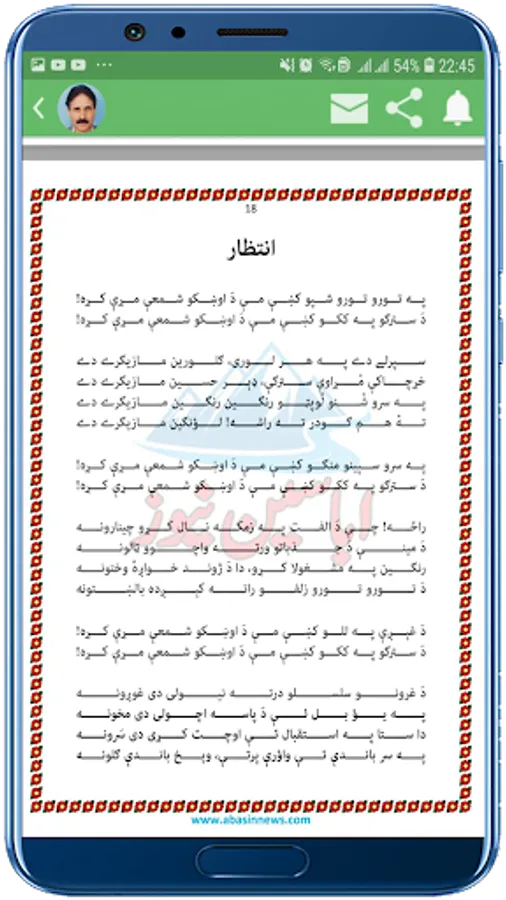 54% 22:45
18
انتظار
په تورو تورو شپو کښې مې دَ اوښکو شمعې مړې کړه!
دَ سترګو په ککو کښې مې دَ اوښکو شمعې مړې کړه!
سپرلے دے په هر لوري، ګلورين مازيګرے دے
خړچاکې مُراوې سترګې، ډېر حسين مازيګرے دے
په سرو شنو لُوپټو رنګين رنګين مازيګرے دے
تۀ هم ګودر ته راشه! لوُنګين مازيګرے دے
په سرو سپينو منګو کښې مې دَ اوښکو شمعې مړې کړه!
دَ سترګو په ککو کښې مې دَ اوښکو شمعې مړې کړه!
راځه! چې دَ الفت په زمکه نال کړو چينارونه
دَ مينې دَ جذباتو ورته واچوو ټالونه
رنګين په مشغولا کړو، دا دَ ژوند خواږۀ وختونه
دَ تورو تورو زلفو راته کېږده بالښتونه
دَ غېږې په للو کښې مې دَ اوښکو شمعې مړې کړه!
دَ سترګو په ککو کښې مې دَ اوښکو شمعې مړې کړه!
دَ غرونو سلسلو درته نيولی دی غوږونه
په يؤ بل ئې دَ پاسه اچولی دی مخونه
دا ستا په استقبال ئې اوچت کړی دی سَرونه
په سر باندې ئې واؤرې پرتې، وپخ باندې ګلونه
اباسين نيوز
www.abasinnews.com